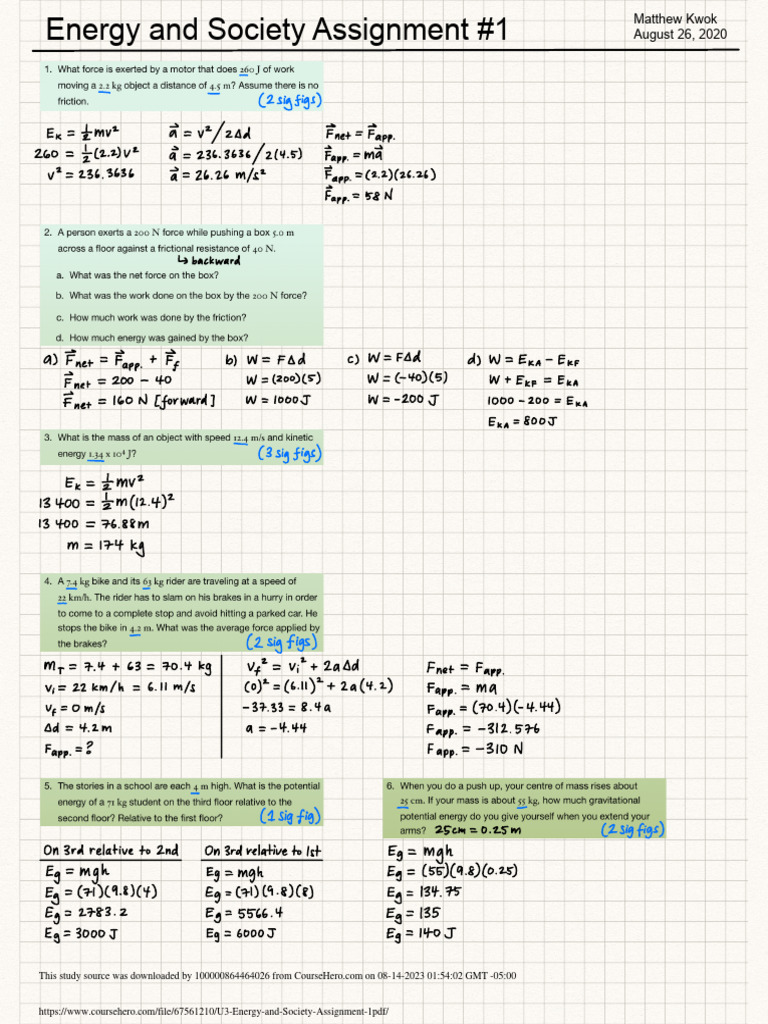 Energy and Society Assignment #1
Matthew Kwok
August 26, 2020
1. What force is exerted by a motor that does 260 J of work
moving a 2.2 kg object a distance of 4.5 m? Assume there is no
friction.
(2 sig figs)
Eₖ = ½mv²
260 = ½(2.2)v²
v² = 236.3636
a⃗ = v²/2Δd
a⃗ = 236.3636/2(4.5)
a⃗ = 26.26 m/s²
F⃗net = F⃗app.
F⃗app. = ma⃗
F⃗app. = (2.2)(26.26)
F⃗app. = 58 N
2. A person exerts a 200 N force while pushing a box 5.0 m
across a floor against a frictional resistance of 40 N.
↳ backward
a. What was the net force on the box?
b. What was the work done on the box by the 200 N force?
c. How much work was done by the friction?
d. How much energy was gained by the box?
a) F⃗net = F⃗app. + F⃗f
F⃗net = 200 - 40
F⃗net = 160 N [forward]
b) W = FΔd
W = (200)(5)
W = 1000 J
c) W = FΔd
W = (-40)(5)
W = -200 J
d) W = EKA - EKF
W + EKF = EKA
1000 - 200 = EKA
EKA = 800 J
3. What is the mass of an object with speed 12.4 m/s and kinetic
energy 1.34 x 10⁴ J?
(3 sig figs)
Eₖ = ½mv²
13 400 = ½m(12.4)²
13 400 = 76.88m
m = 174 kg
4. A 7.4 kg bike and its 63 kg rider are traveling at a speed of
22 km/h. The rider has to slam on his brakes in a hurry in order
to come to a complete stop and avoid hitting a parked car. He
stops the bike in 4.2 m. What was the average force applied by
the brakes?
(2 sig figs)
mT = 7.4 + 63 = 70.4 kg
vi = 22 km/h = 6.11 m/s
vf = 0 m/s
Δd = 4.2 m
Fapp. = ?
vf² = vi² + 2aΔd
(0)² = (6.11)² + 2a(4.2)
-37.33 = 8.4a
a = -4.44
Fnet = Fapp.
Fapp. = ma
Fapp. = (70.4)(-4.44)
Fapp. = -312.576
Fapp. = -310 N
5. The stories in a school are each 4 m high. What is the potential
energy of a 71 kg student on the third floor relative to the
second floor? Relative to the first floor?
(1 sig fig)
On 3rd relative to 2nd
Eg = mgh
Eg = (71)(9.8)(4)
Eg = 2783.2
Eg = 3000 J
On 3rd relative to 1st
Eg = mgh
Eg = (71)(9.8)(8)
Eg = 5566.4
Eg = 6000 J
6. When you do a push up, your centre of mass rises about
25 cm. If your mass is about 55 kg, how much gravitational
potential energy do you give yourself when you extend your
arms? 25cm = 0.25 m
(2 sig figs)
Eg = mgh
Eg = (55)(9.8)(0.25)
Eg = 134.75
Eg = 135
Eg = 140 J
This study source was downloaded by 100000864464026 from CourseHero.com on 08-14-2023 01:54:02 GMT -05:00
https://www.coursehero.com/file/67561210/U3-Energy-and-Society-Assignment-1pdf/